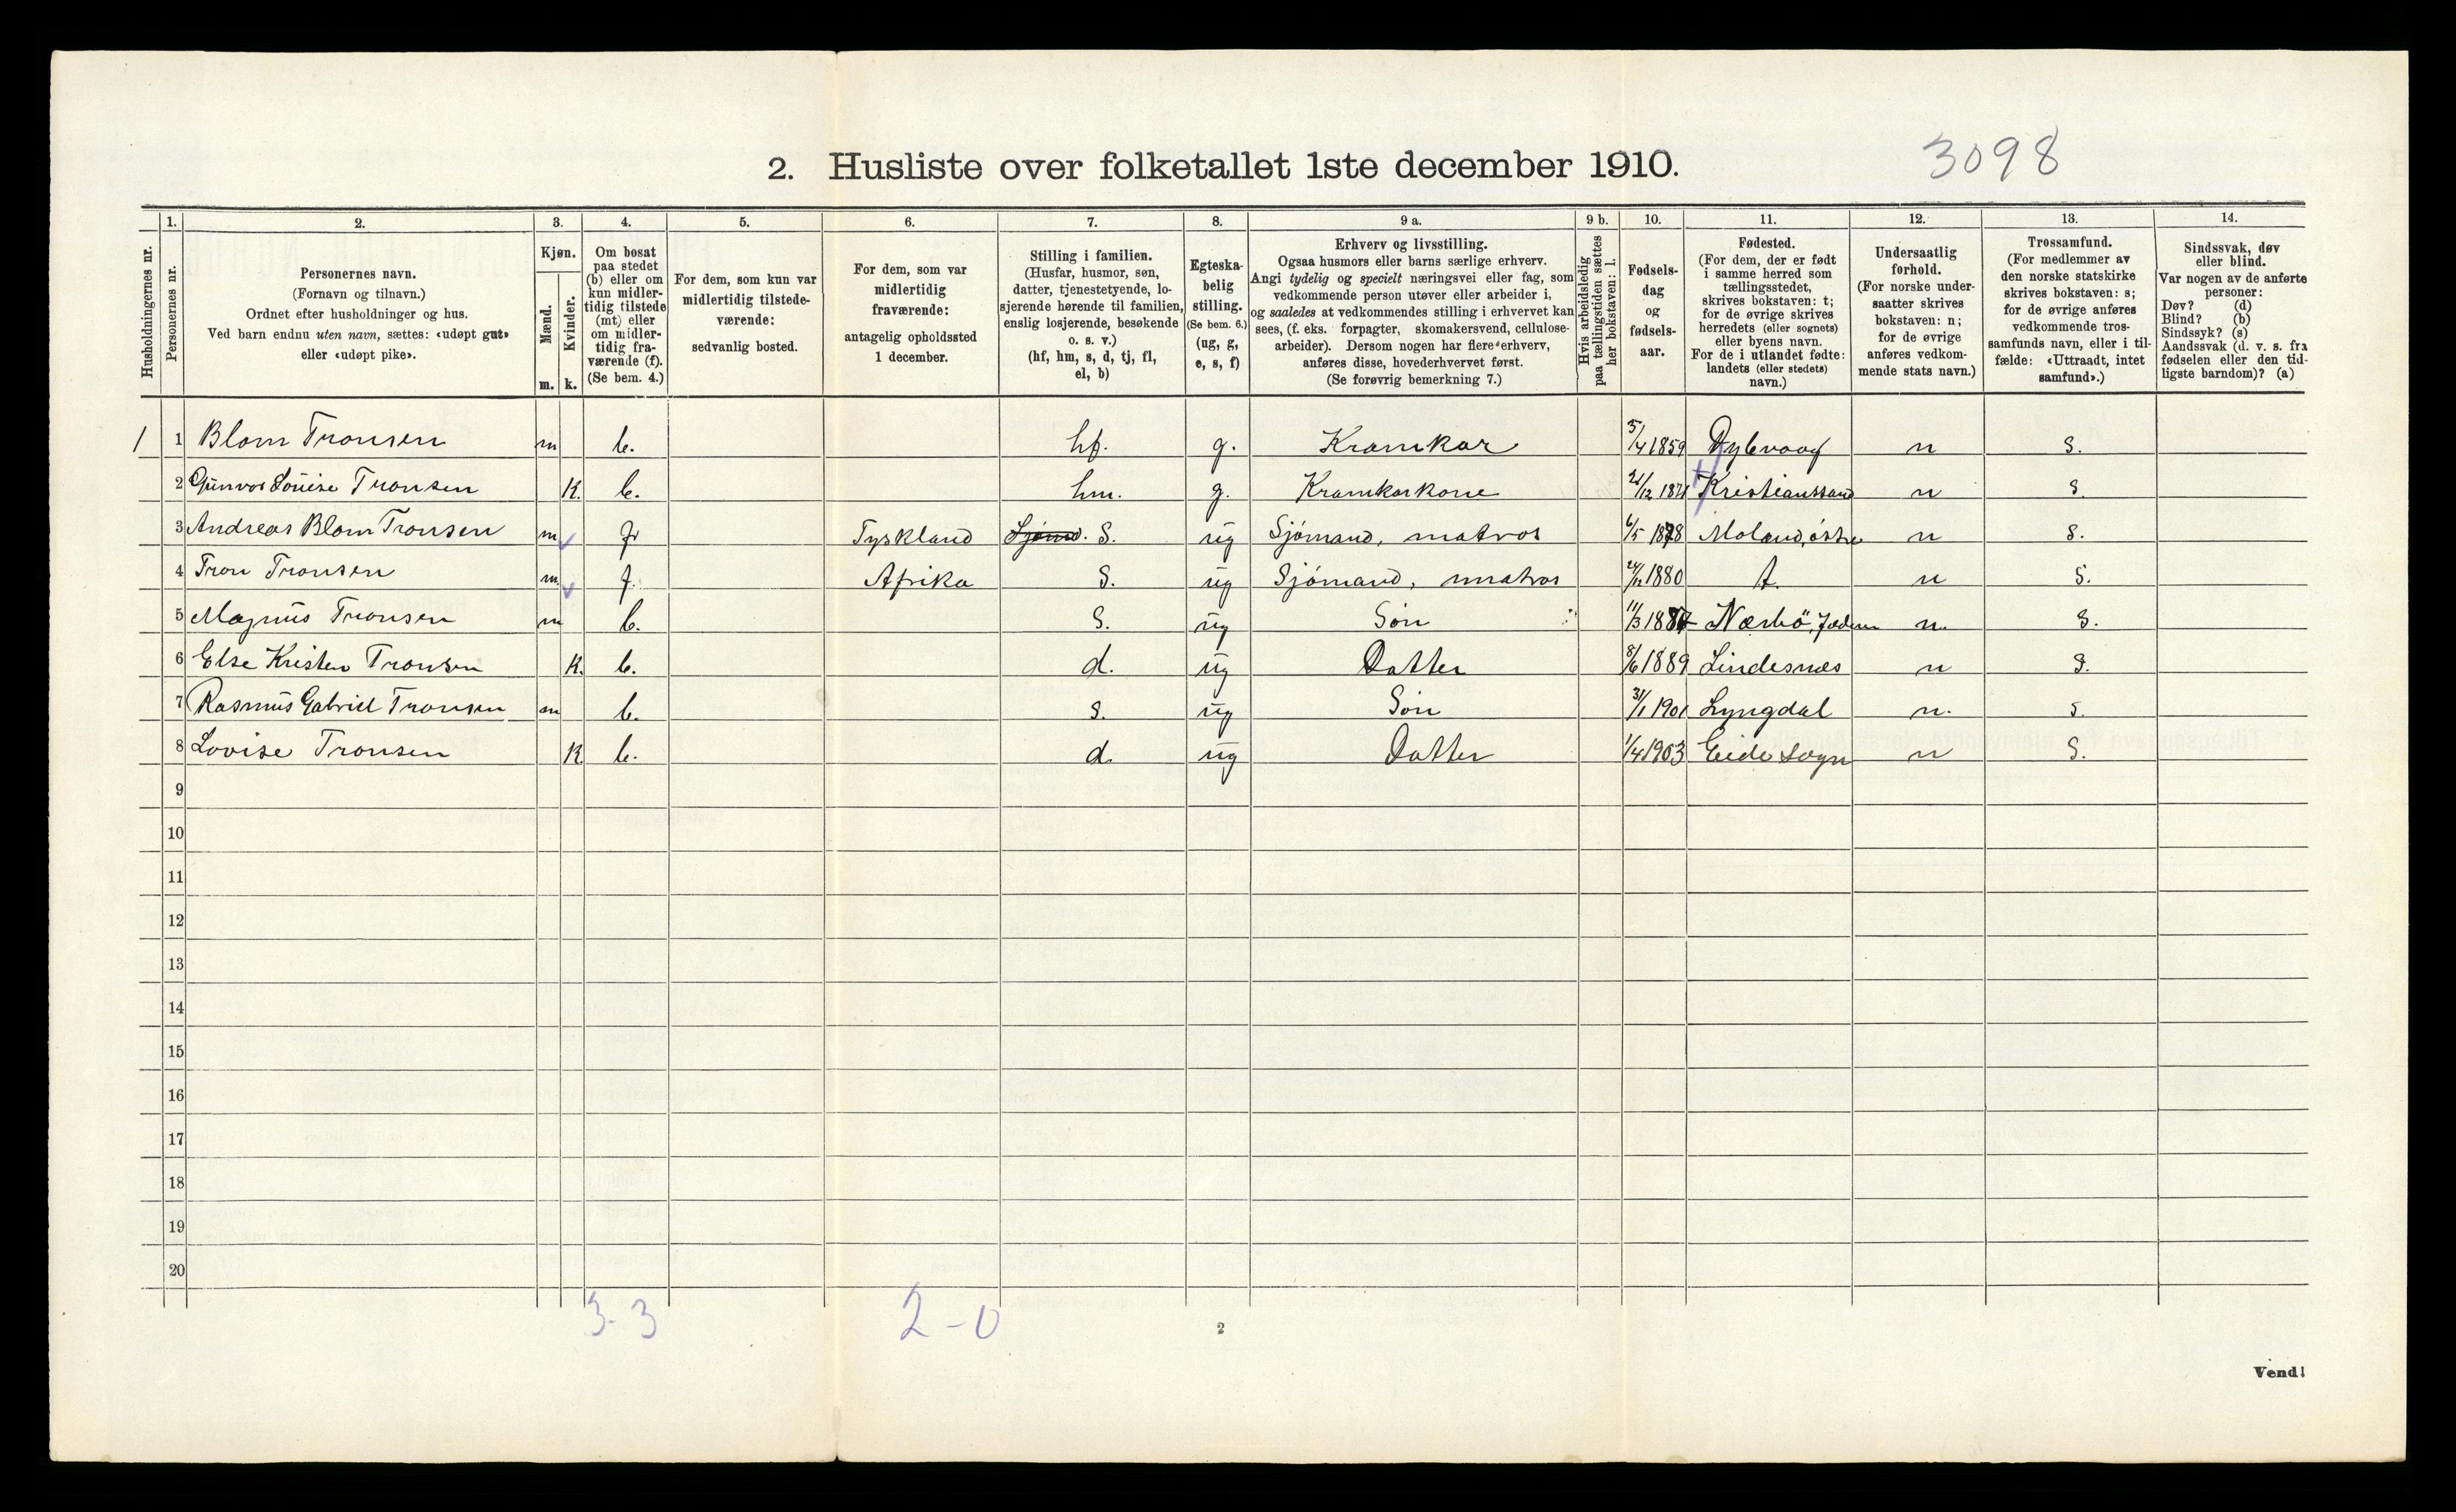 2. Husliste over folketallet 1ste december 1910.
3098
Husholdningernes nr.
1. Personernes nr.
2. Personernes navn. (Fornavn og tilnavn.) Ordnet efter husholdninger og hus. Ved barn endnu uten navn, sættes: «udøpt gut» eller «udøpt pike».
3. Kjøn. Mænd. m. Kvinder. k.
4. Om bosat paa stedet (b) eller om kun midler-tidig tilstede (mt) eller om midler-tidig fra-værende (f). (Se bem. 4.)
5. For dem, som kun var midlertidig tilstede-værende: sedvanlig bosted.
6. For dem, som var midlertidig fraværende: antagelig opholdssted 1 december.
7. Stilling i familien. (Husfar, husmor, søn, datter, tjenestetyende, lo-sjerende hørende til familien, enslig losjerende, besøkende o. s. v.) (hf, hm, s, d, tj, fl, el, b)
8. Egteska-belig stilling. (Se bem. 6.) (ug, g, e, s, f)
9 a. Erhverv og livsstilling. Ogsaa husmors eller barns særlige erhverv. Angi tydelig og specielt næringsvei eller fag, som vedkommende person utøver eller arbeider i, og saaledes at vedkommendes stilling i erhvervet kan sees, (f. eks. forpagter, skomakersvend, cellulose-arbeider). Dersom nogen har flere erhverv, anføres disse, hovederhvervet først. (Se forøvrig bemerkning 7.)
9 b. Hvis arbeidsledig paa tællingstiden sættes her bokstaven: l.
10. Fødsels-dag og fødsels-aar.
11. Fødested. (For dem, der er født i samme herred som tællingsstedet, skrives bokstaven: t; for de øvrige skrives herredets (eller sognets) eller byens navn. For de i utlandet fødte: landets (eller stedets) navn.)
12. Undersaatlig forhold. (For norske under-saatter skrives bokstaven: n; for de øvrige anføres vedkom-mende stats navn.)
13. Trossamfund. (For medlemmer av den norske statskirke skrives bokstaven: s; for de øvrige anføres vedkommende tros-samfunds navn, eller i til-fælde: «Uttraadt, intet samfund».)
14. Sindssvak, døv eller blind. Var nogen av de anførte personer: Døv? (d) Blind? (b) Sindssyk? (s) Aandssvak (d. v. s. fra fødselen eller den tid-ligste barndom)? (a)
1 1 Blom Tronsen m b. hf. g. Kramkar 5/4 1859 Dybvaag n s.
2 Gunvor Louise Tronsen K. b. hm. g. Kramkarkone /12 Kristianssand n s
3 Andreas Blom Tronsen m f Tyskland Sjømd. S. ug Sjømand, matros 6/5 1878 Moland, østre n s.
4 Tron Tronsen m. f. Afrika S. ug Sjømand, matros 24/12 1880 t. n s.
5 Magnus Tronsen m b. S. ug Søn 11/3 1887 Nærbö, Jæderen n. s.
6 Else Kristen Tronsen K. b. d. ug Datter 8/6 1889 Lindesnæs n s.
7 Rasmus Gabriel Tronsen m b. s. ug Søn 31/1 1901 Lyngdal n. s.
8 Lovise Tronsen K b. d. ug Datter 1/4 1903 Eide sogn n s.
9
10
11
12
13
14
15
16
17
18
19
20
3-3 2-0
2
Vend!